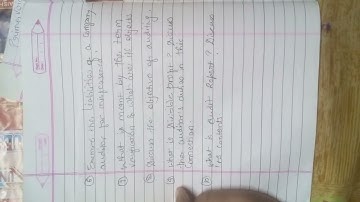 ⑥ Examine the liabilities of a Company
auditor for misfeasance
⑦ What is meant by the term
verification & what are its objects
⑧ discuss the objective of auditing.
⑨ what is Divisible profit? discuss
the auditor's duties in this
Connection
⑩ what is audit Report? Discuss
its Contents